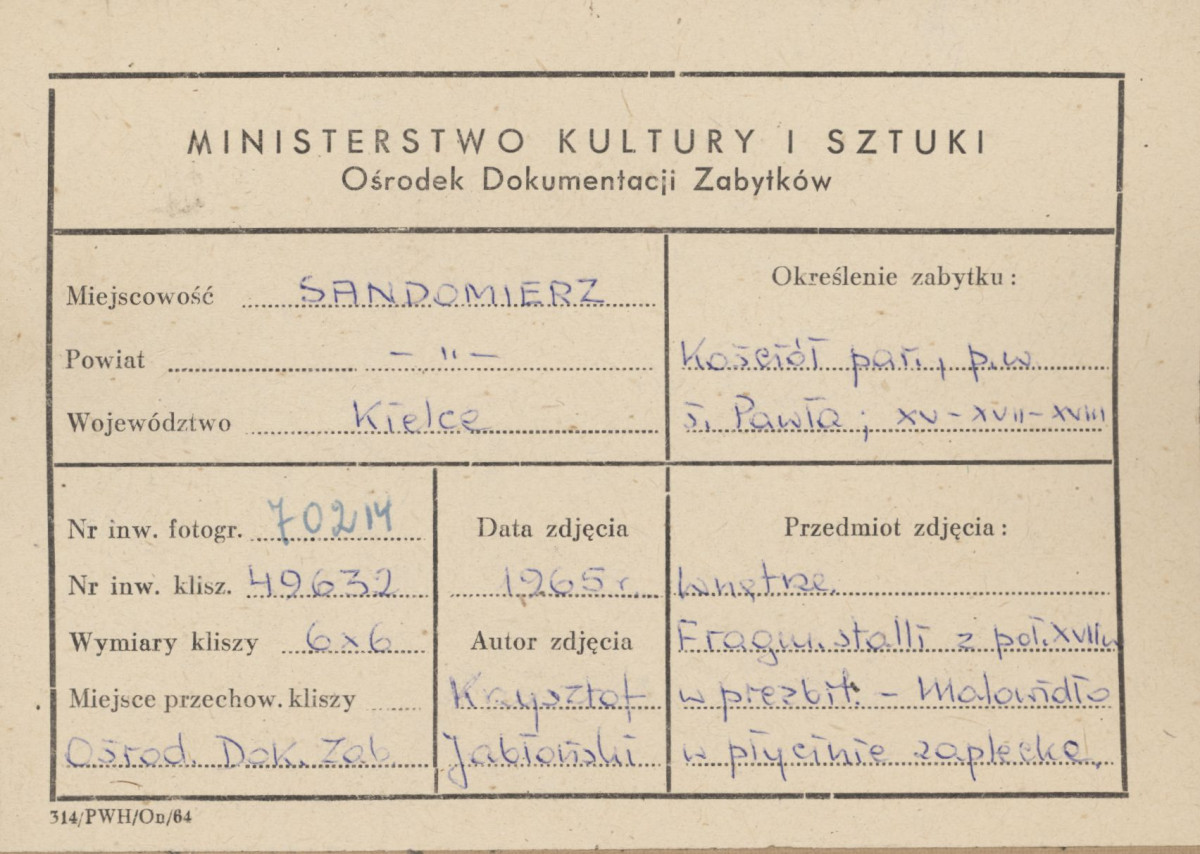 MINISTERSTWO KULTURY I SZTUKI
Ośrodek Dokumentacji Zabytków
Miejscowość SANDOMIERZ
Powiat — " —
Województwo Kielce
Określenie zabytku:
Kościół par., p.w.
ś. Pawła; XV-XVII-XVIII
Nr inw. fotogr. 70214
Nr inw. klisz. 49632
Wymiary kliszy 6x6
Miejsce przechow. kliszy
Ośrod. Dok. Zab.
Data zdjęcia
1965 r.
Autor zdjęcia
Krzysztof
Jabłoński
Przedmiot zdjęcia:
Wnętrze.
Fragm. stalli z poł. XVII w
w prezbit. - Malowidło
w płycinie zaplecka.
314/PWH/On/64